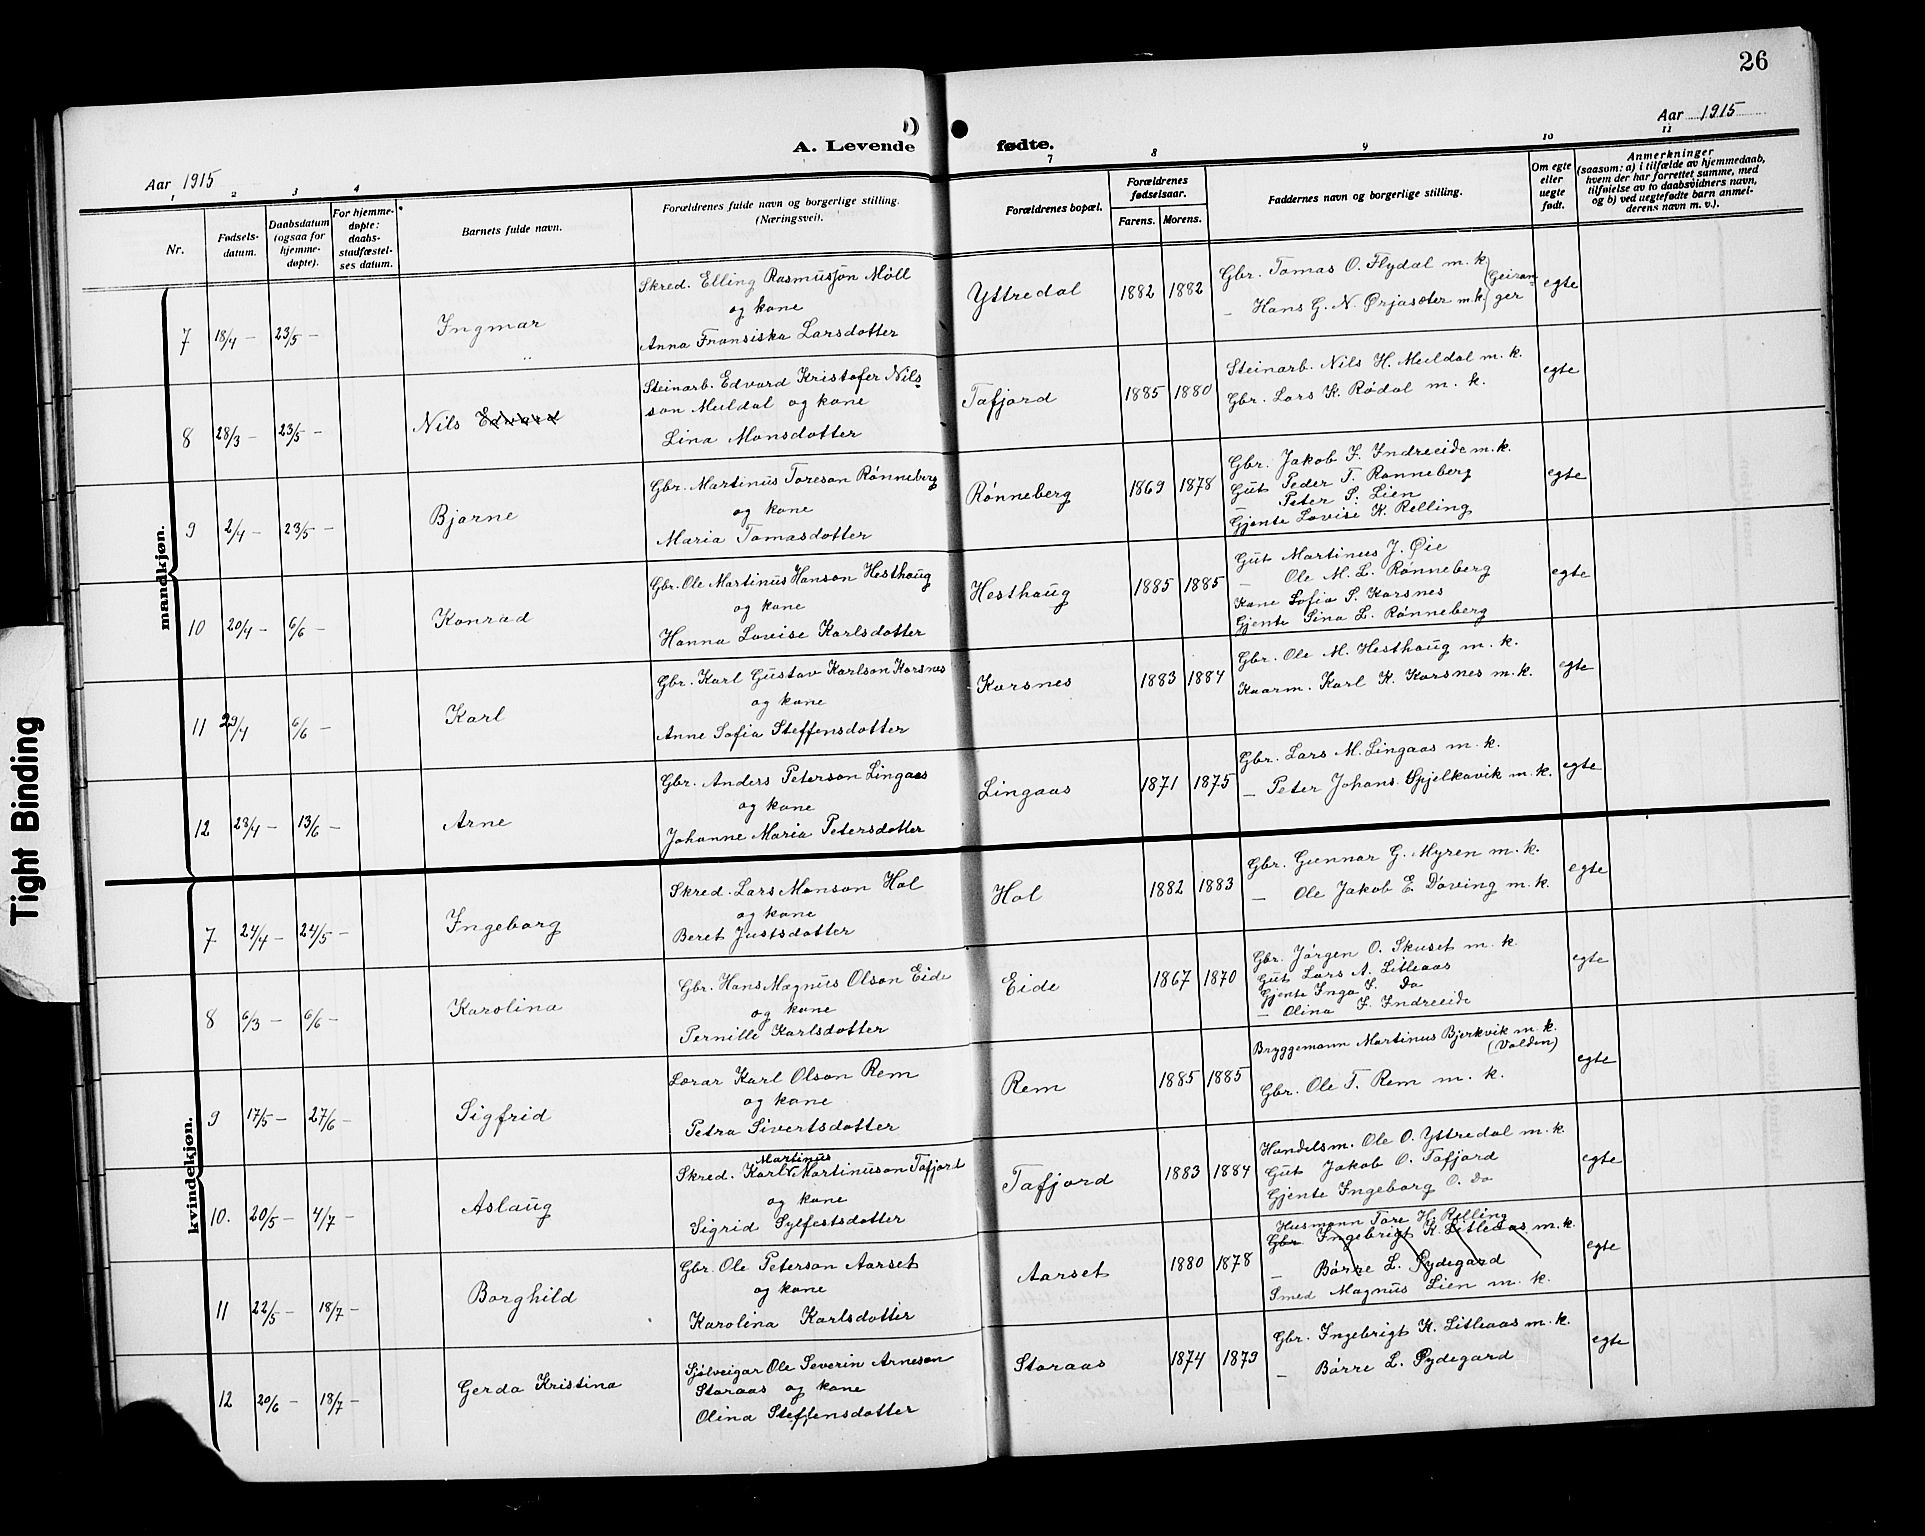 26
Aar 1915
A. Levende fødte.
Aar 1915
1 2 3 4 7 8 9 10 11
Nr.
Fødsels-
datum.
Daabsdatum
(ogsaa for
hjemme-
døpte).
For hjemme-
døpte:
daabs-
stadfæstel-
ses datum.
Barnets fulde navn.
Forældrenes fulde navn og borgerlige stilling.
(Næringsvei).
Forældrenes bopæl.
Forældrenes
fødselsaar.
Farens. Morens.
Faddernes navn og borgerlige stilling.
Om egte
eller
uegte
født.
Anmerkninger
(saasom: a) i tilfælde av hjemmedaab,
hvem der har forrettet samme, med
tilføielse av to daabsvidners navn,
og b) ved uegtefødte barn anmel-
derens navn m. v.).
mandkjøn.
7 18/4 — 23/5 — Ingmar
Skred. Elling Rasmusson Möll
og kone
Anna Fransiska Larsdotter
Yttredal 1882 1882
Gbr. Tomas O. Flydal m. k.
— Hans G. N. Ørjasæter m. k. (Geiran-
ger
egte
8 28/3 — 23/5 — Nils Edvard
Steinarb. Edvard Kristofer Nils-
son Muldal og kone
Lina Monsdotter
Tafjord 1885 1880
Steinarb. Nils H. Muldal m. k.
Gbr. Lars K. Rødal m. k.
egte
9 2/4 — 23/5 — Bjarne
Gbr. Martinus Toreson Rønneberg
og kone
Maria Tomasdotter
Rønneberg 1869 1878
Gbr. Jakob I. Indreeide m. k.
Gut Peder T. Rønneberg
— Peter S. Lien
Gjente Lovise K. Relling
egte
10 20/4 — 6/6 — Konrad
Gbr. Ole Martinus Hanson Hesthaug
og kone
Hanna Lovise Karlsdotter
Hesthaug 1885 1885
Gut Martinus J. Øie
— Ole M. L. Rønneberg
Kone Sofia S. Korsnes
Gjente Sina L. Rønneberg
egte
11 29/4 6/6 — Karl
Gbr. Karl Gustav Karlson Korsnes
og kone
Anne Sofia Steffensdotter
Korsnes 1883 1884
Gbr. Ole M. Hesthaug m. k.
Kaarm. Karl K. Korsnes m. k.
egte
12 28/4 — 13/6 — Arne
Gbr. Anders Peterson Lingaas
og kone
Johanne Maria Petersdotter
Lingaas 1871 1875
Gbr. Lars M. Lingaas m. k.
— Peter Johans. Spjelkavik m. k.
egte
kvindekjøn.
7 24/4 — 24/5 — Ingeborg
Skred. Lars Monson Hol
og kone
Beret Justsdotter
Hol 1882 1883
Gbr. Gunnar G. Myren m. k.
— Ole Jakob E. Døving m. k.
egte
8 6/3 — 6/6 — Karolina
Gbr. Hans Magnus Olson Eide
og kone
Pernille Karlsdotter
Eide 1867 1870
Gbr. Jørgen O. Skuset m. k.
Gut Lars A. Litleaas
Gjente Inga I. do
— Olina I. Indreeide
egte
9 17/5 — 27/6 — Sigfrid
Lærar Karl Olson Rem
og kone
Petra Sivertsdotter
Rem 1885 1885
Bryggemann Martinus Bjerkvik m. k.
(Valden)
Gbr. Ole T. Rem m. k.
egte
10. 20/5 — 4/7 — Aslaug
Martinus
Skred. Karl Martinuson Tafjord
og kone
Sigrid Sylfestsdotter
Tafjord 1883 1884
Handelsm. Ole O. Yttredal m. k
Gut Jakob O. Tafjord
Gjente Ingeborg O. do
egte
11 22/5 — 18/7 — Borghild
Gbr. Ole Peterson Aarset
og kone
Karolina Karlsdotter
Aarset 1880 1878
Husmann Tore H. Relling
Gbr Ingebrigt K. Litleaas m. k.
— Børre L. Rydegard
Smed Magnus Lien m. k.
egte
12 20/6 — 18/7 — Gerda Kristina
Sjølveigar Ole Severin Arneson
Storaas og kone
Olina Steffensdotter
Storaas 1874 1879
Gbr. Ingebrigt K. Litleaas m. k.
— Børre L. Rydegard
egte
Tight Binding